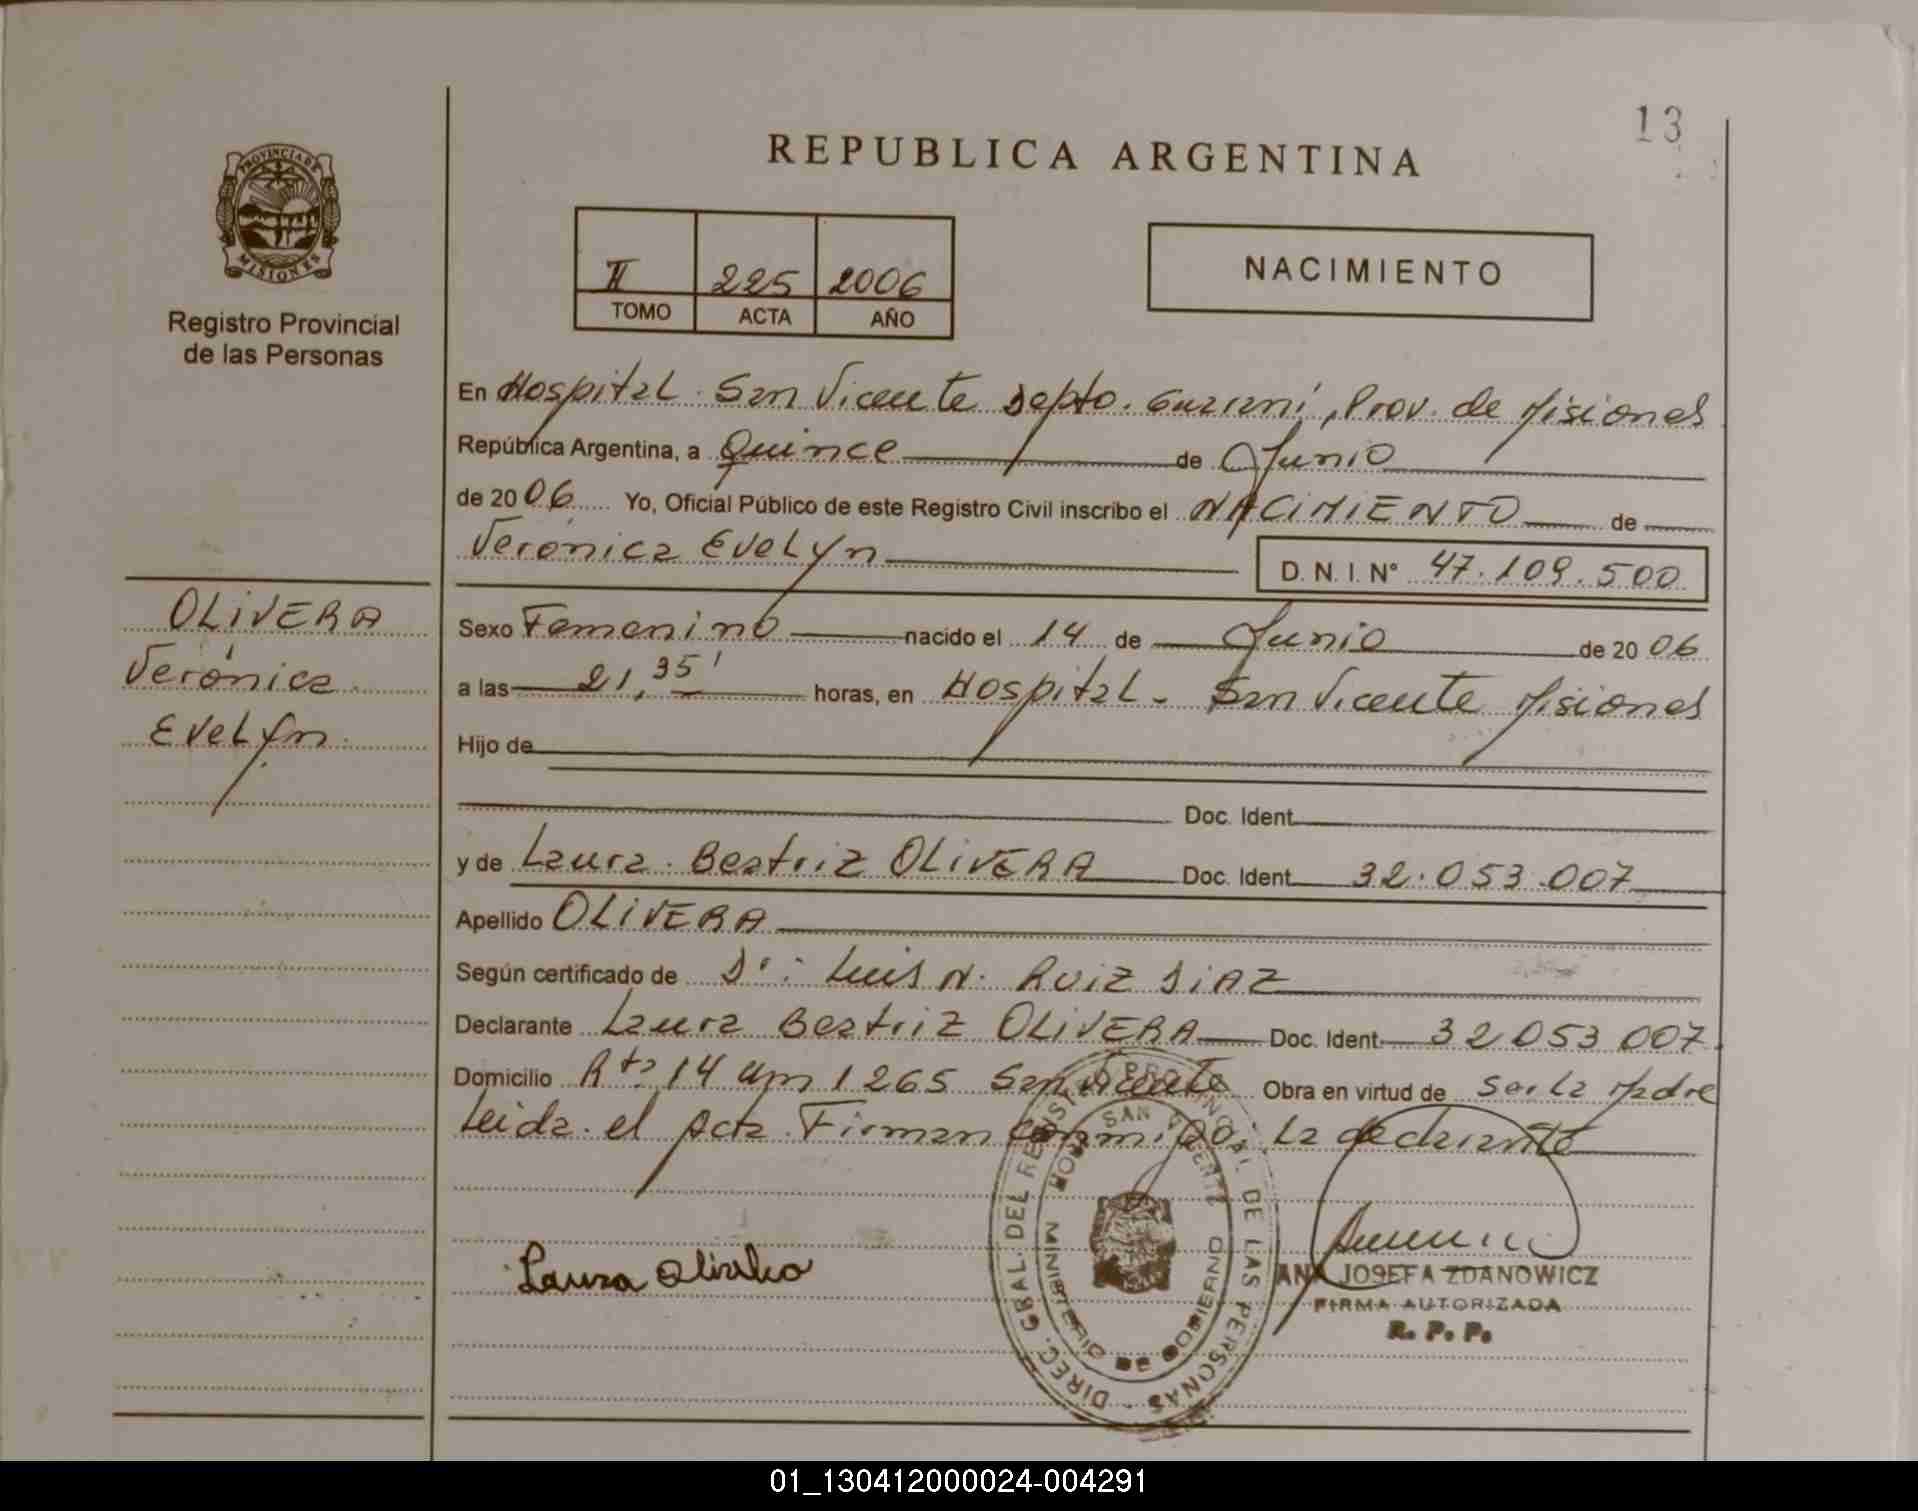 13
REPUBLICA ARGENTINA
PROVINCIA DE
MISIONES
Registro Provincial
de las Personas
II 225 2006
TOMO ACTA AÑO
NACIMIENTO
En Hospital San Vicente Depto. Guaraní, Prov. de Misiones
República Argentina, a Quince de Junio
de 2006 Yo, Oficial Público de este Registro Civil inscribo el NACIMIENTO de
Verónica Evelyn
D. N. I. N° 47.109.500
OLIVERA
Verónica
Evelyn
Sexo Femenino nacido el 14 de Junio de 2006
a las 21,35' horas, en Hospital - San Vicente Misiones
Hijo de
Doc. Ident.
y de Laura Beatriz OLIVERA Doc. Ident. 32.053.007
Apellido OLIVERA
Según certificado de Dr: Luis N. RUIZ DIAZ
Declarante Laura Beatriz OLIVERA Doc. Ident. 32 053 007
Domicilio Rta 14 Km 1265 San Vicente Obra en virtud de Ser la Madre
Leida el Acta Firman conmigo, La declarante
Laura Olivera
DIREC. GRAL. DEL REGISTRO PROVINCIAL DE LAS PERSONAS
HOSP. SAN VICENTE
MINISTERIO DE GOBIERNO
ANA JOSEFA ZDANOWICZ
FIRMA AUTORIZADA
R. P. P.
01_130412000024-004291